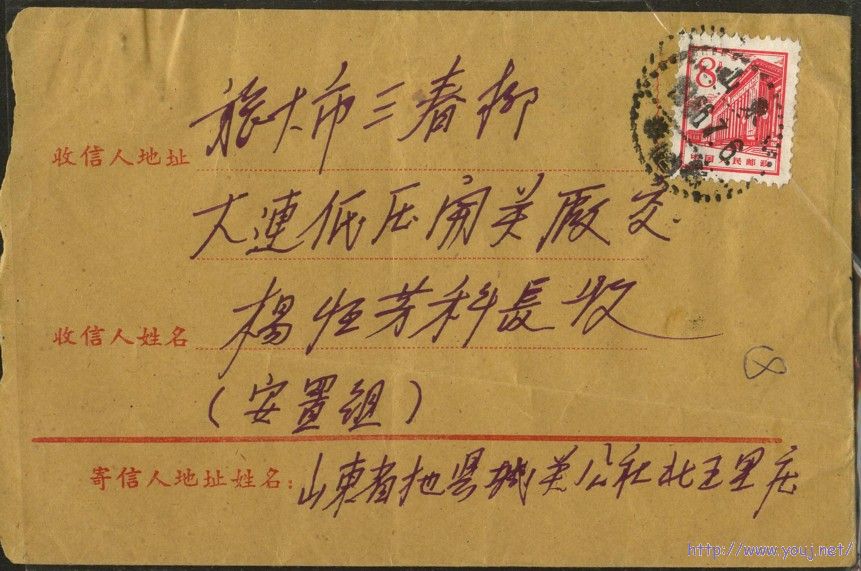 旅大市三春柳
收信人地址
大連低压開关厰交
楊恒芳科長收
收信人姓名
(安置组)
寄信人地址姓名:
山東省 县城关公社北王里庄
8
中国人民邮政
山東
7.6
8
http://www.youj.net/